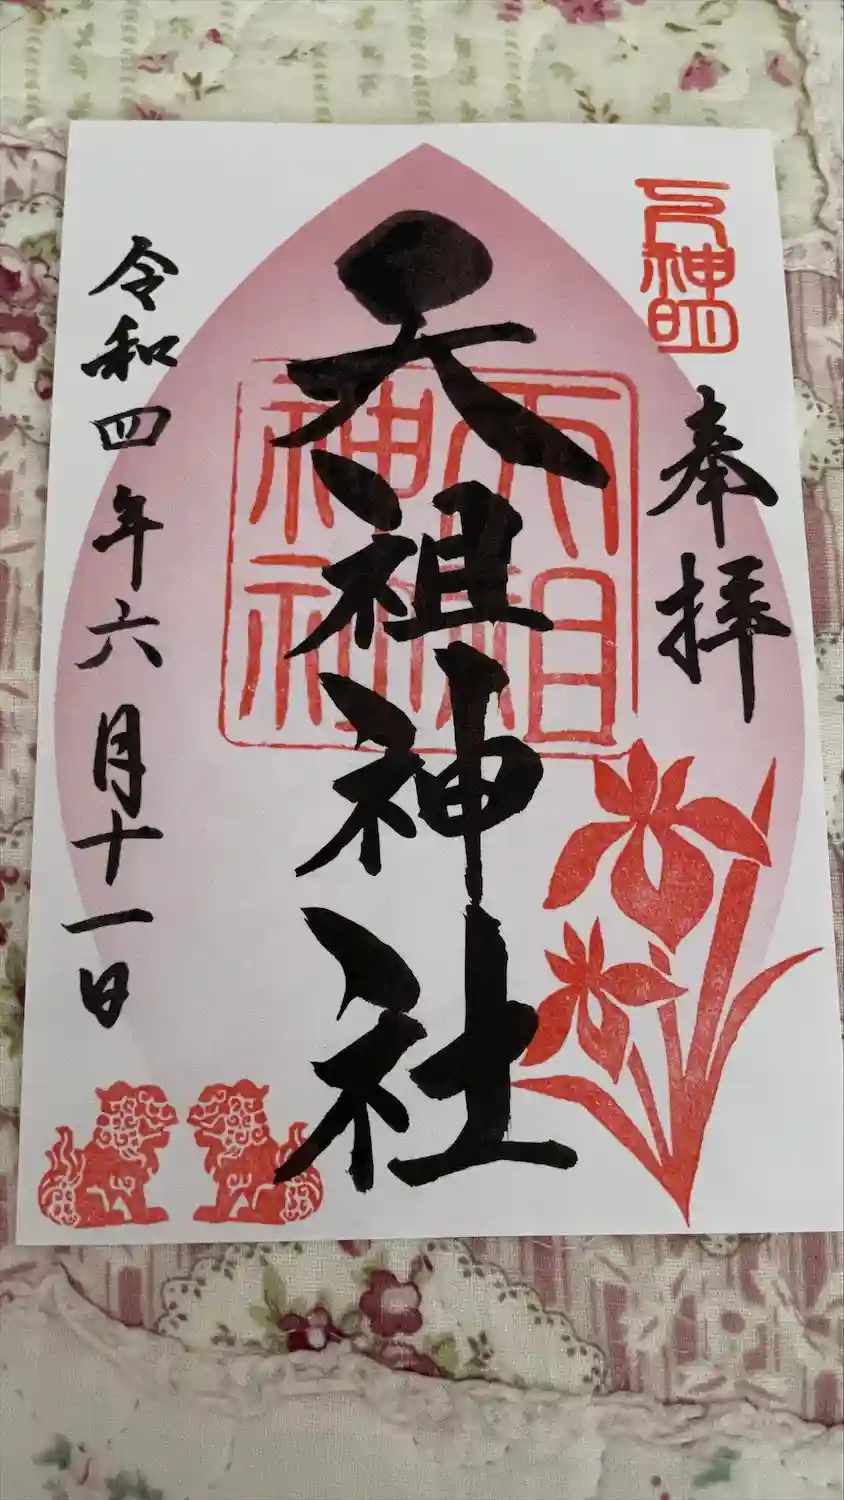 奉拝
天祖神社
天祖
神社
令和四年六月十一日